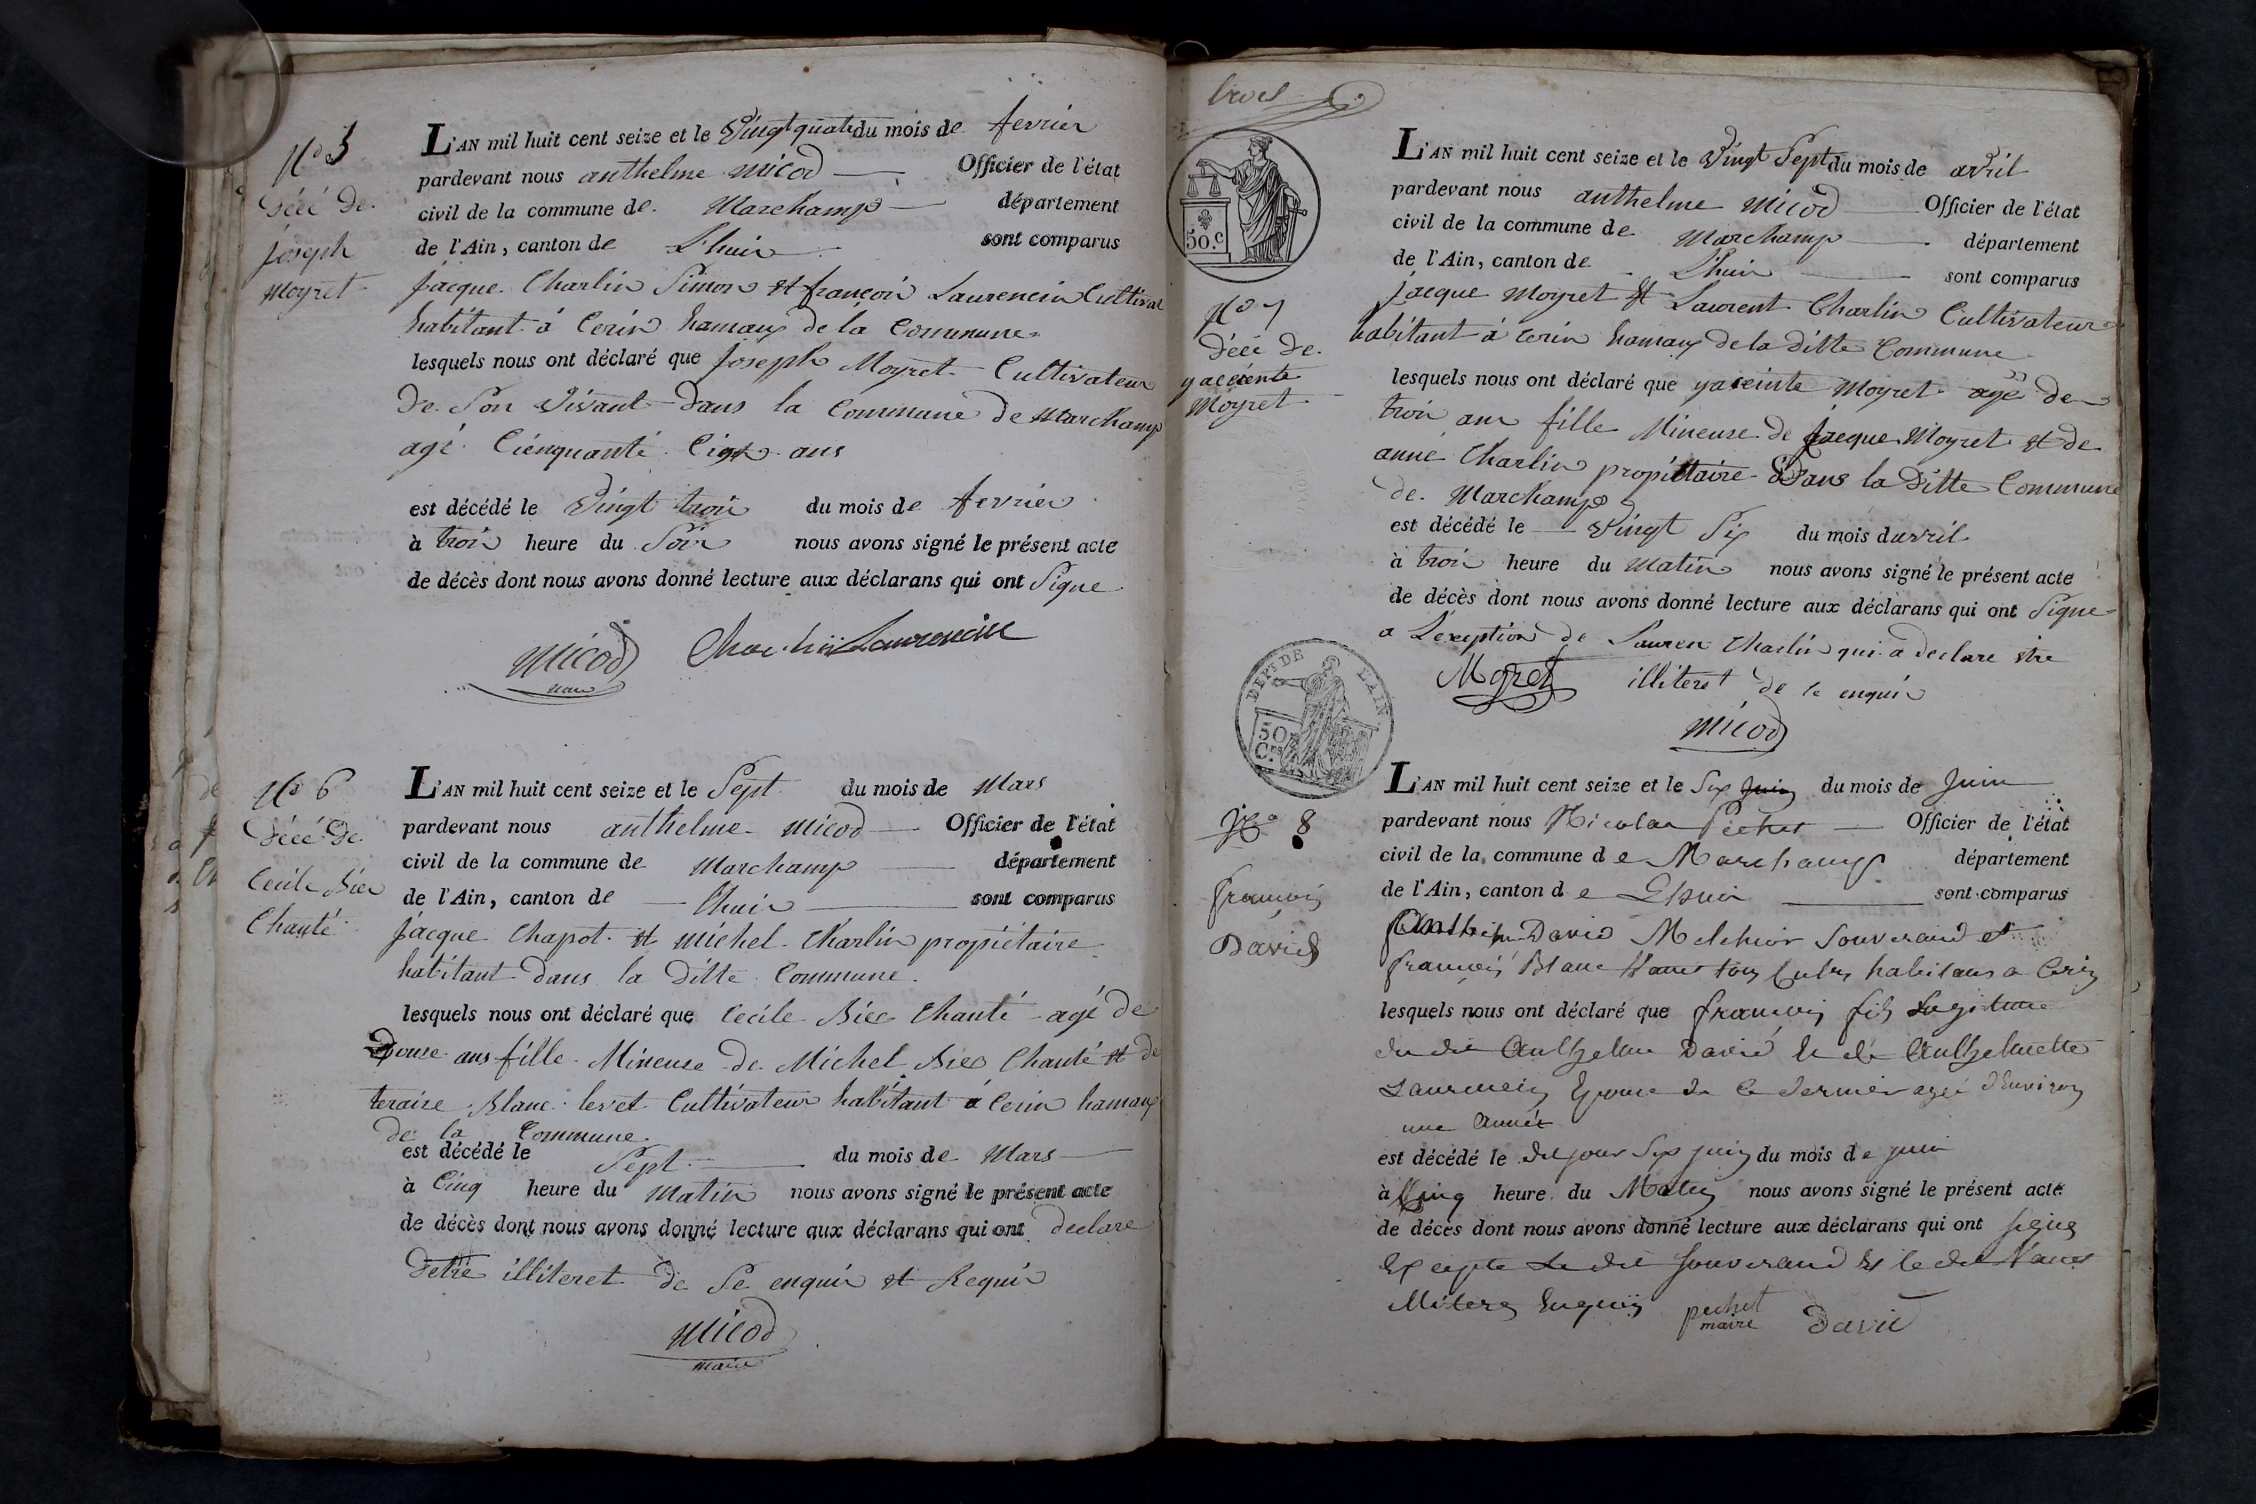 No 5
Décé de
joseph
Moyret
L'AN mil huit cent seize et le Vingt quatre du mois de fevrier
pardevant nous anthelme Micod Officier de l'état
civil de la commune de Marchamp département
de l'Ain, canton de L'huis sont comparus
jacque Charlin Simon et françois Laurencin Cultivat
habitant á Cerin hamaux de la Commune
lesquels nous ont déclaré que joseph Moyret Cultivateur
de Son Vivant dans la Commune de Marchamp
agé Cienquanté Cinq ans
est décédé le Vingt trois du mois de fevrier
à trois heure du Soir nous avons signé le présent acte
de décès dont nous avons donné lecture aux déclarans qui ont Signe
Micod Charlin Laurencin
maire
No 6
Décé de
Cecile Biec
Chanté
L'AN mil huit cent seize et le Sept du mois de Mars
pardevant nous anthelme Micod Officier de l'état
civil de la commune de Marchamp département
de l'Ain, canton de Lhuis sont comparus
jacque Chapot et Michel Charlin propiétaire
habitant dans la ditte Commune
lesquels nous ont déclaré que Cecile Biec Chanté agé de
Douse ans fille Mineuse de Michel Biec Chanté et de
teraise Blanc levet Cultivateur habitant á Cerin hamaux
de la Commune
est décédé le Sept du mois de Mars
à Cinq heure du Matin nous avons signé le présent acte
de décès dont nous avons donné lecture aux déclarans qui ont declare
Detre illiteret de Se enquir et Requir
Micod
maire
trois
50.c
No 7
Décé de
yaceinte
Moyret
L'AN mil huit cent seize et le Vingt Sept du mois de avril
pardevant nous anthelme Micod Officier de l'état
civil de la commune de Marchamp département
de l'Ain, canton de L'huis sont comparus
jacque Moyret et Laurent Charlin Cultivateur
habitant á Cerin hamaux de la ditte Commune
lesquels nous ont déclaré que yaceinte Moyret agé de
trois ans fille Mineuse de jacque Moyret et de
anne Charlin propiettaire Dans la Ditte Commune
de Marchamp
est décédé le Vingt Six du mois d'avril
à trois heure du Matin nous avons signé le présent acte
de décès dont nous avons donné lecture aux déclarans qui ont Signe
a L'exeption de Lauren Charlin qui a declare etre
Moyret illiteret de ce enquis
Micod
DEPT DE L'AIN
50
Ces
No 8
francois
David
L'AN mil huit cent seize et le Six juin du mois de Juin
pardevant nous Nicolas Pechet Officier de l'état
civil de la commune de Marchamp département
de l'Ain, canton de Lhuis sont comparus
David Melchior Souverand et
françois Blanc tous habitans a Cerin
lesquels nous ont déclaré que francois fils Legitime
du dit Anthelme David et de Anthelmette
Laurencin Epouse de ce dernier agé d'Environ
une année
est décédé le dit jour Six juin du mois de juin
à Cinq heure du Matin nous avons signé le présent acte
de décès dont nous avons donné lecture aux déclarans qui ont signé
Excepte Le dit Souverand et le dit
enquis pechet David
maire